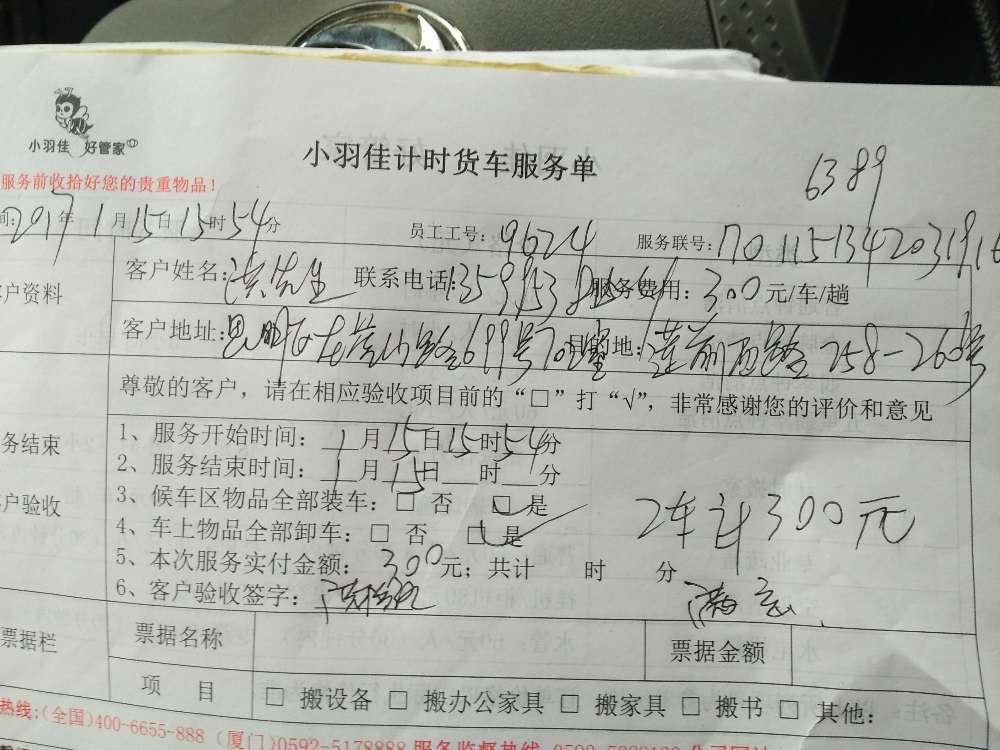 小羽佳 好管家
小羽佳计时货车服务单
6389
服务前收拾好您的贵重物品！
间：2017年1月15日15时54分 员工工号：9624 服务联号：170115134203191
户资料 客户姓名：洪先生 联系电话：1359953 服务费用：300元/车/趟
客户地址：思明区 路699号 目的地：莲前西路258-260号
尊敬的客户，请在相应验收项目前的“□”打“√”，非常感谢您的评价和意见
务结束
户验收
1、服务开始时间：1月15日15时54分
2、服务结束时间：1月15日 时 分
3、候车区物品全部装车：□ 否 □ 是
4、车上物品全部卸车：□ 否 □ 是
2车计300元
5、本次服务实付金额：300元；共计 时 分
6、客户验收签字： 满意
票据栏 票据名称 票据金额
项 目 □ 搬设备 □ 搬办公家具 □ 搬家具 □ 搬书 □ 其他：
热线:(全国)400-6655-888 (厦门)0592-5178888 服务监督热线